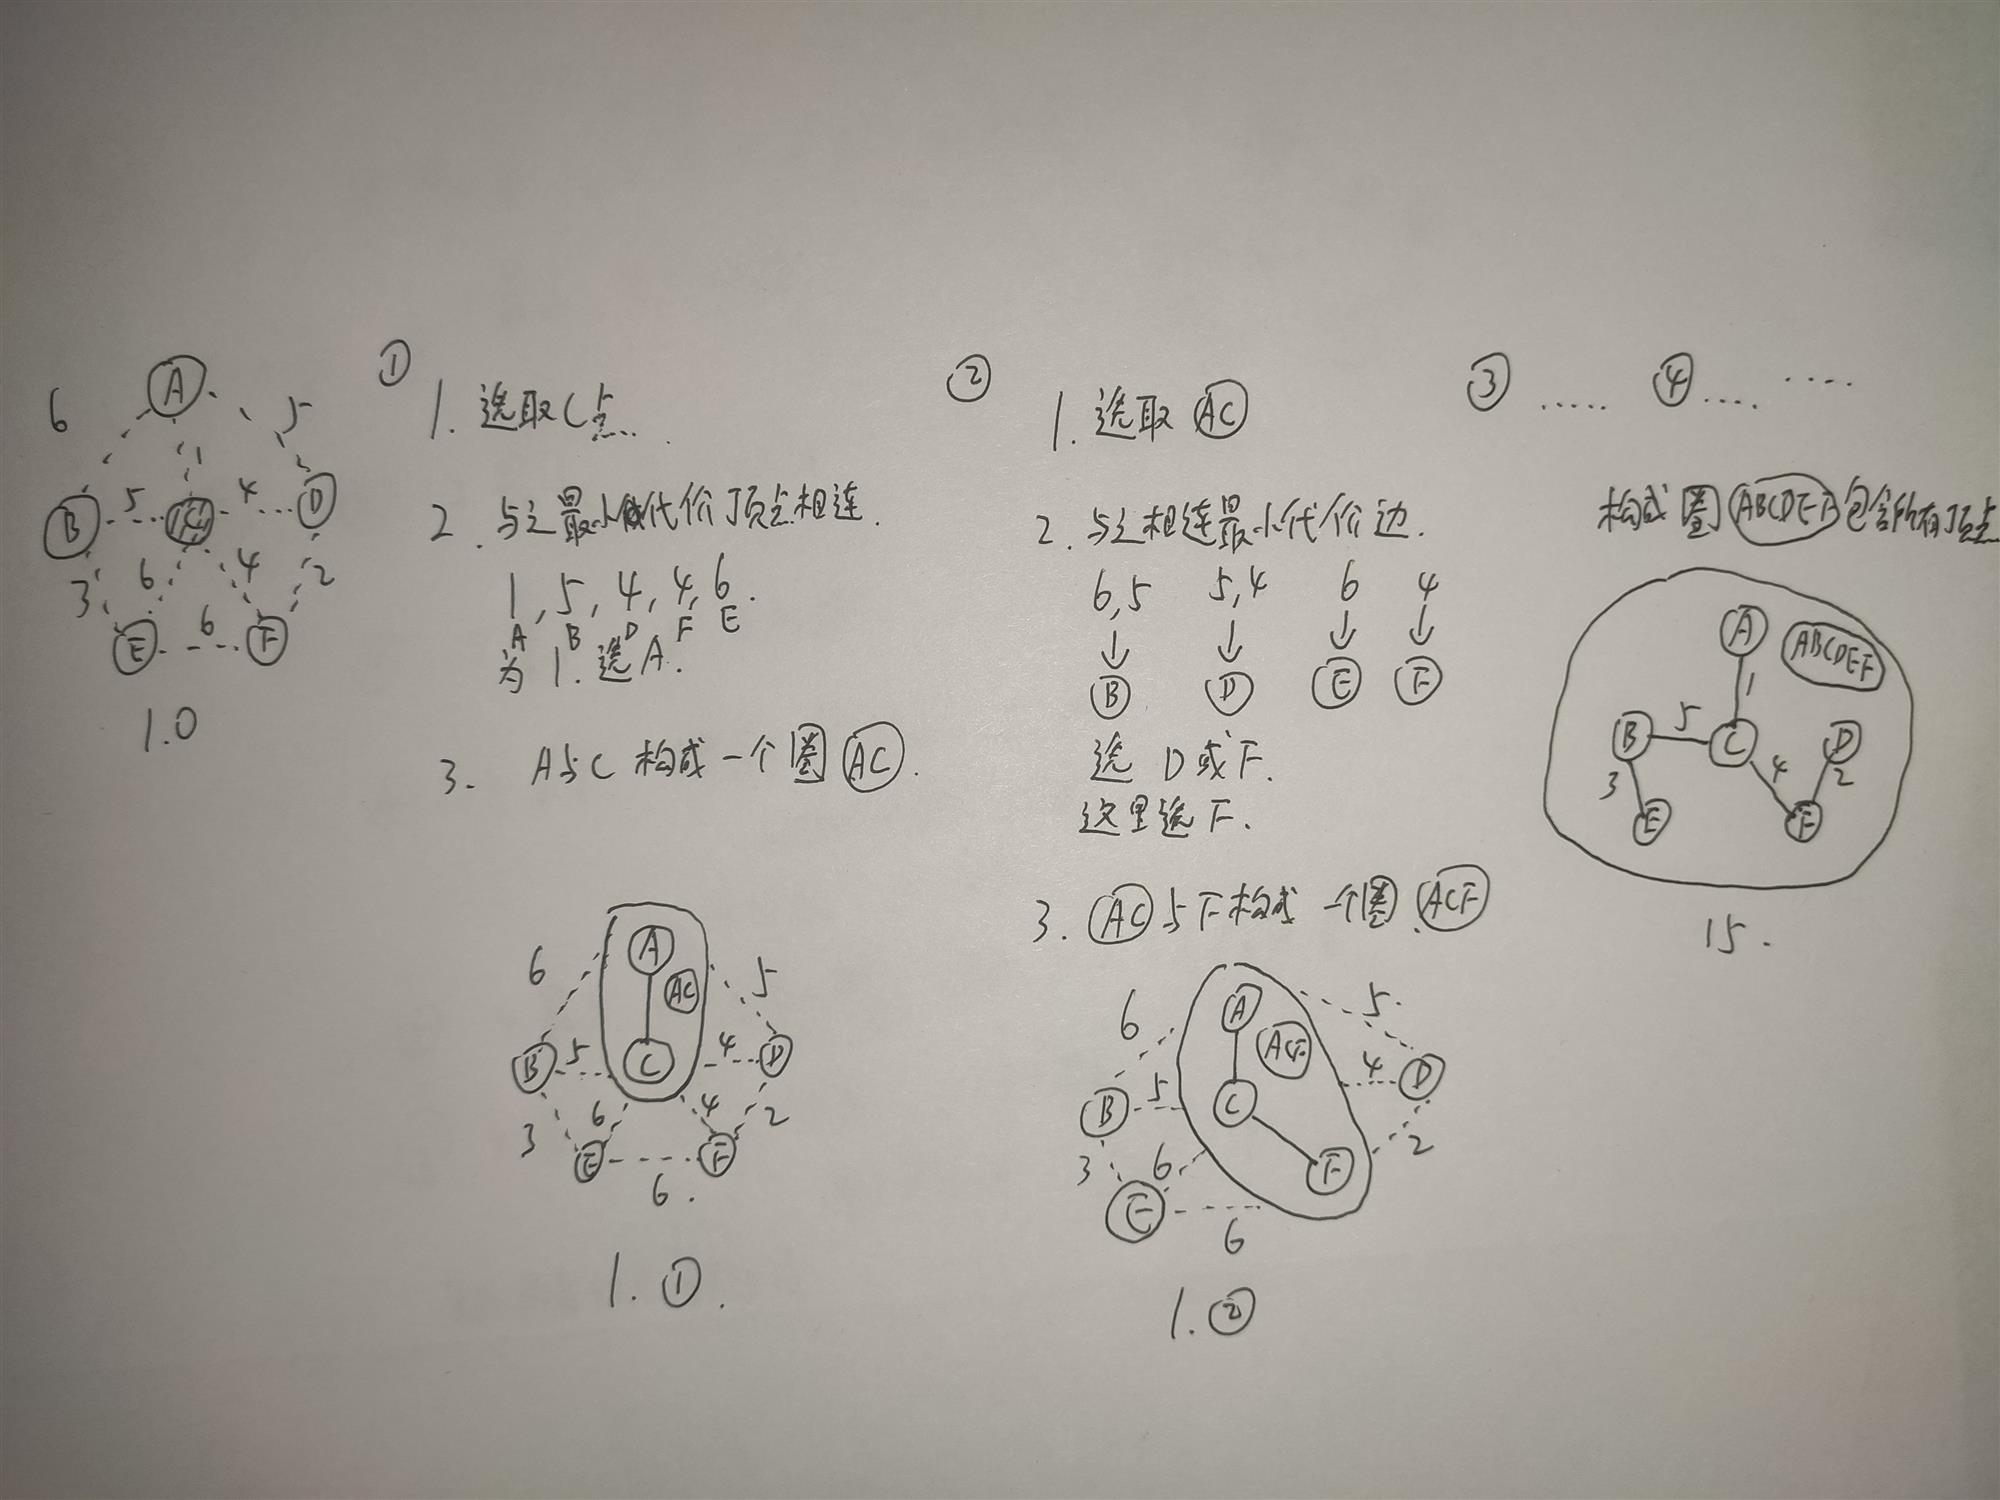 A
6
5
1
B
5
C
4
D
3
6
4
2
E
6
F
1.0
①
1. 选取C点.
2. 与之最小代价顶点相连.
1, 5, 4, 4, 6.
A B D F E
为 1. 选A.
3. A与C 构成一个圈 AC.
A
6
AC
5
B
5
C
4
D
3
6
4
2
E
F
6.
1. ①.
②
1. 选取 AC
2. 与之相连最小代价边.
6,5 5,4 6 4
↓ ↓ ↓ ↓
B D E F
选 D或F.
这里选F.
3. AC 与F构成 一个圈 ACF
A
5.
6
ACF
4
D
B
5
C
3
6
2
F
E
6
1. ②
③ ..... ④ .... ....
构成圈 ABCDEF 包含所有顶点
A
ABCDEF
1
B
5
C
D
4
2
3
E
F
15.